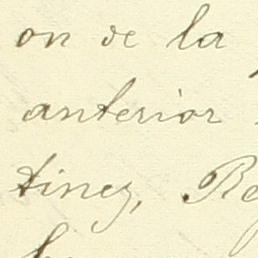 on de la
anterior
tinez, Re